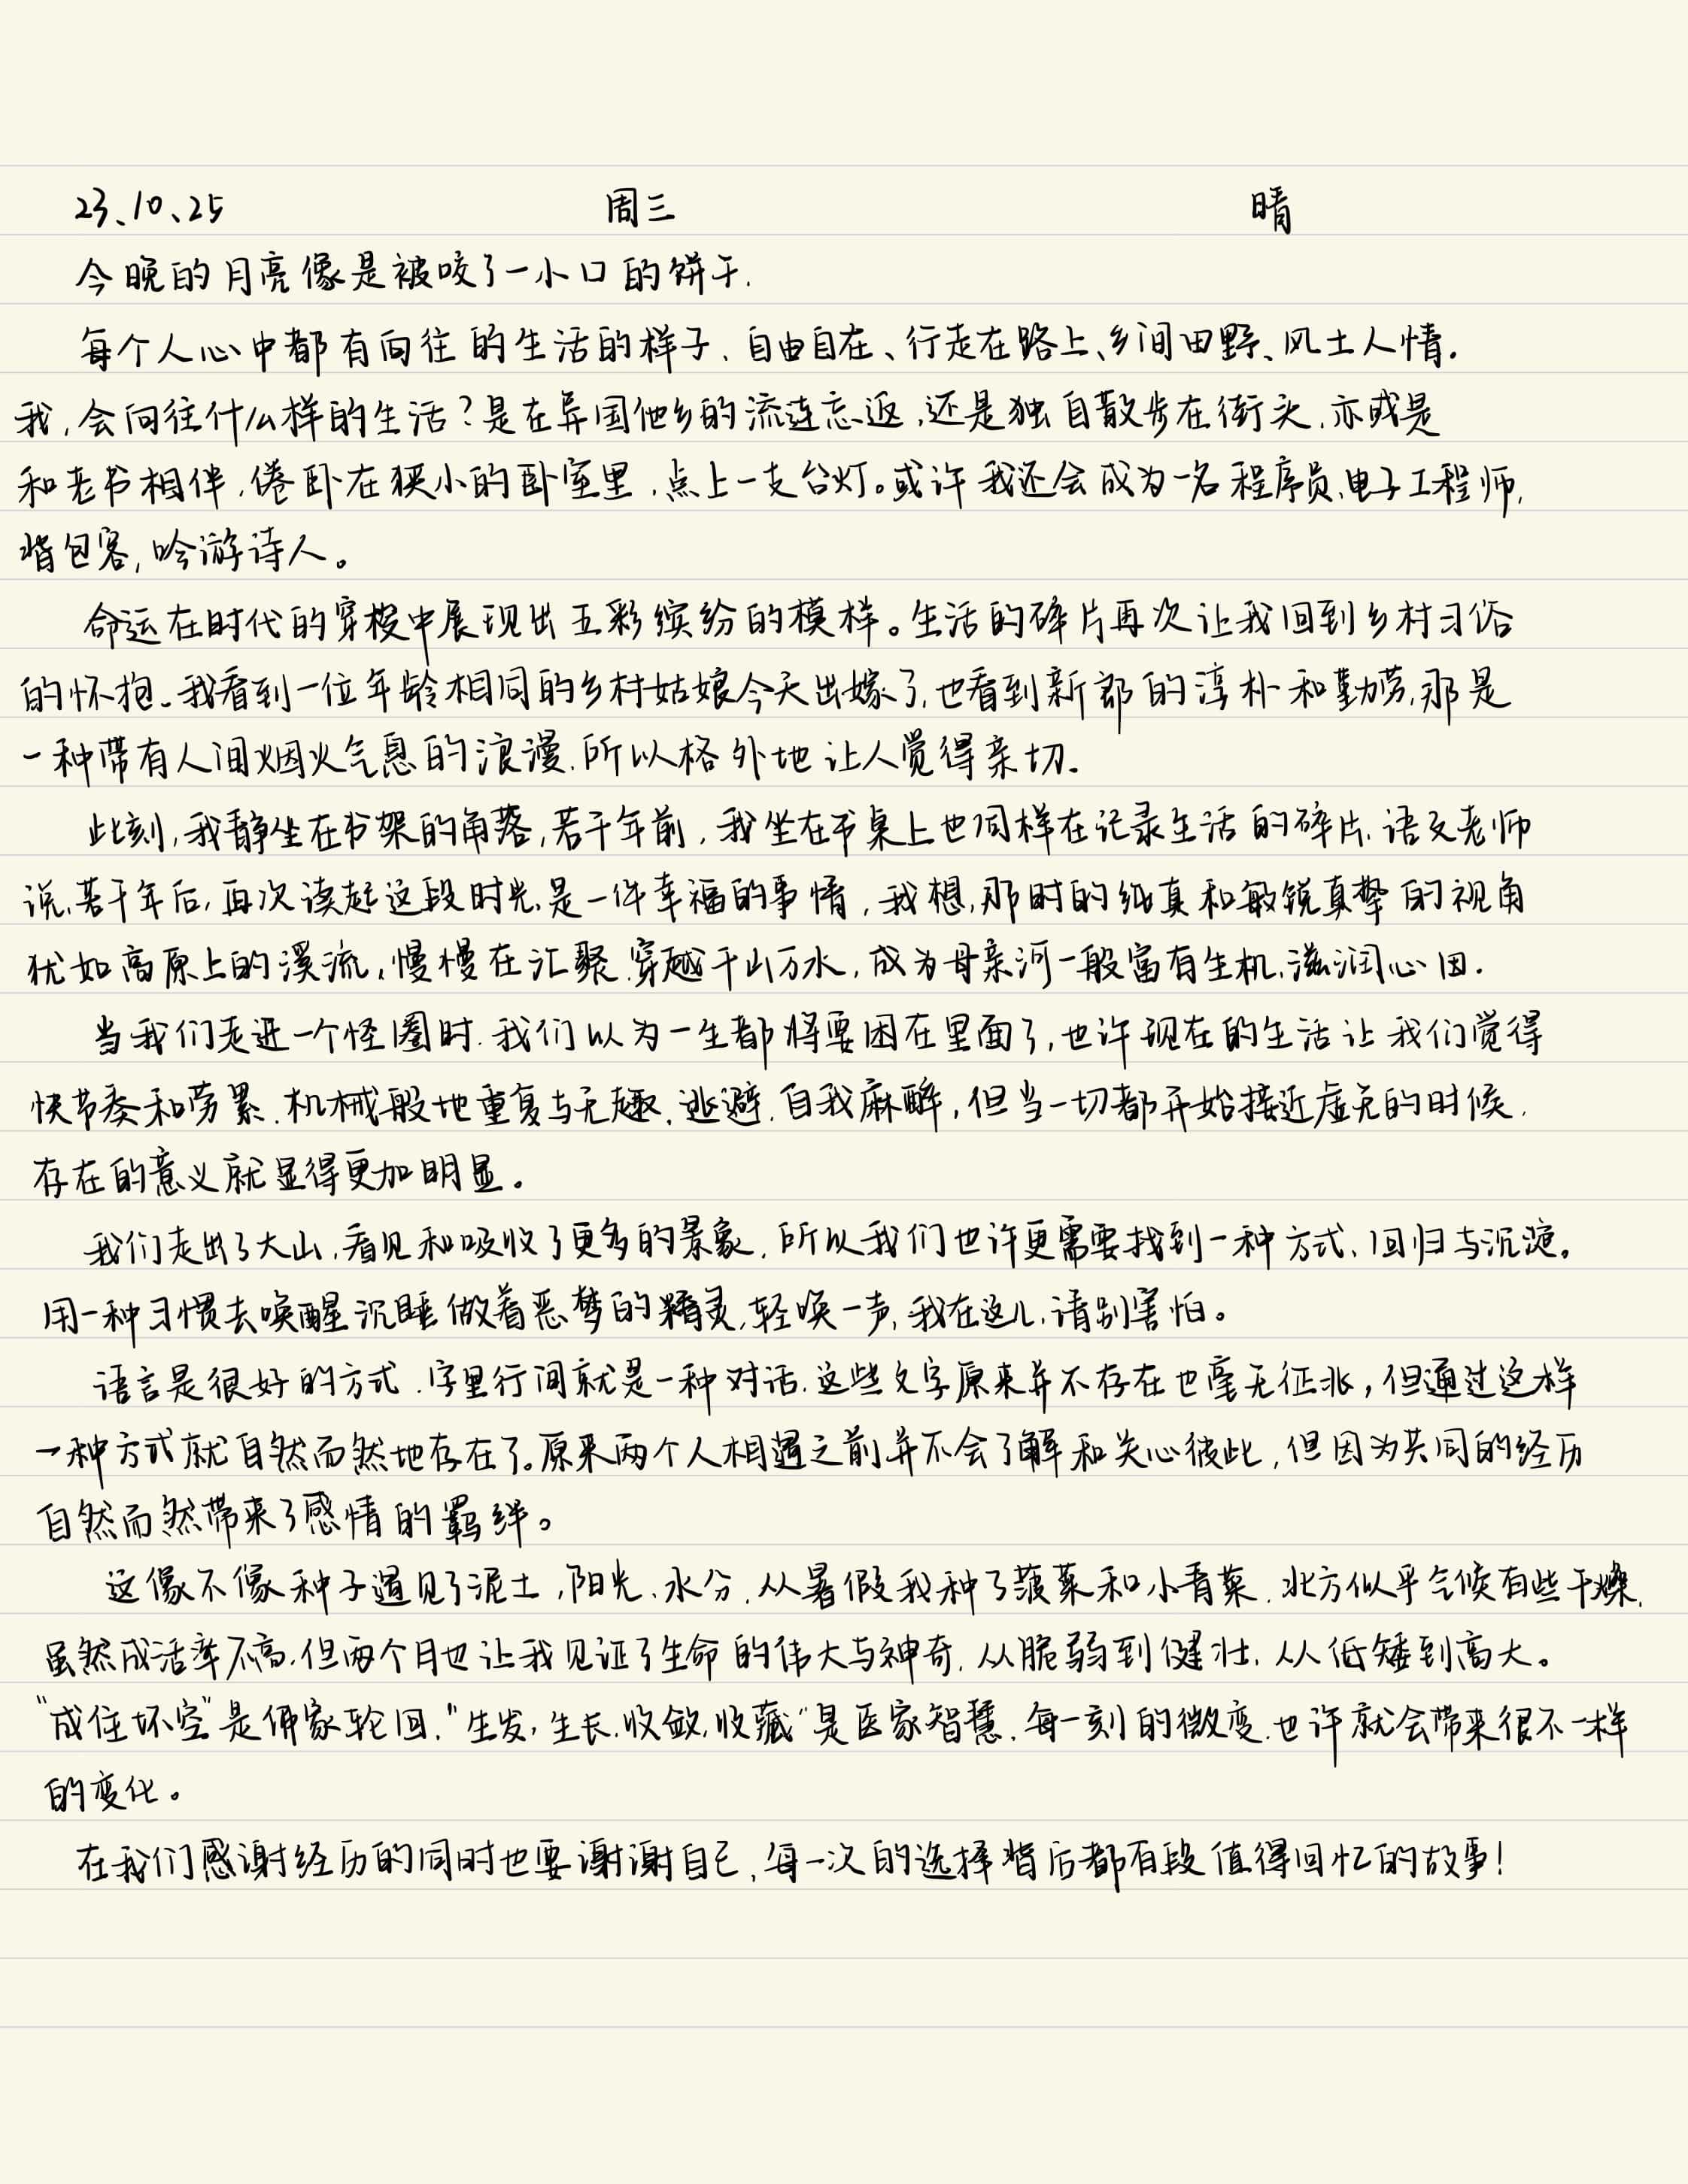 23、10、25 周三 晴
今晚的月亮像是被咬了一小口的饼干.
每个人心中都有向往的生活的样子、自由自在、行走在路上、乡间田野、风土人情.
我,会向往什么样的生活?是在异国他乡的流连忘返,还是独自散步在街头,亦或是
和老书相伴,倦卧在狭小的卧室里,点上一支台灯。或许我还会成为一名程序员,电子工程师,
背包客,吟游诗人。
命运在时代的穿梭中展现出五彩缤纷的模样。生活的碎片再次让我回到乡村习俗
的怀抱.我看到一位年龄相同的乡村姑娘今天出嫁了,也看到新郎的淳朴和勤劳,那是
一种带有人间烟火气息的浪漫.所以格外地让人觉得亲切.
此刻,我静坐在书架的角落,若干年前,我坐在书桌上也同样在记录生活的碎片.语文老师
说,若干年后,再次读起这段时光,是一件幸福的事情,我想,那时的纯真和敏锐真挚的视角
犹如高原上的溪流,慢慢在汇聚.穿越千山万水,成为母亲河一般富有生机,滋润心田.
当我们走进一个怪圈时.我们以为一生都将要困在里面了,也许现在的生活让我们觉得
快节奏和劳累.机械般地重复与无趣.逃避.自我麻醉,但当一切都开始接近虚无的时候,
存在的意义就显得更加明显。
我们走出了大山,看见和吸收了更多的景象,所以我们也许更需要找到一种方式、回归与沉淀。
用一种习惯去唤醒沉睡做着恶梦的精灵,轻唤一声,我在这儿,请别害怕。
语言是很好的方式.字里行间就是一种对话.这些文字原来并不存在也毫无征兆,但通过这样
一种方式就自然而然地存在了。原来两个人相遇之前并不会了解和关心彼此,但因为共同的经历
自然而然带来了感情的羁绊。
这像不像种子遇见了泥土,阳光、水分.从暑假我种了菠菜和小青菜.北方似乎气候有些干燥,
虽然成活率不高,但两个月也让我见证了生命的伟大与神奇.从脆弱到健壮.从低矮到高大。
“成住坏空”是佛家轮回,“生发,生长,收敛,收藏”是医家智慧.每一刻的微变.也许就会带来很不一样
的变化。
在我们感谢经历的同时也要谢谢自己,每一次的选择背后都有段值得回忆的故事!